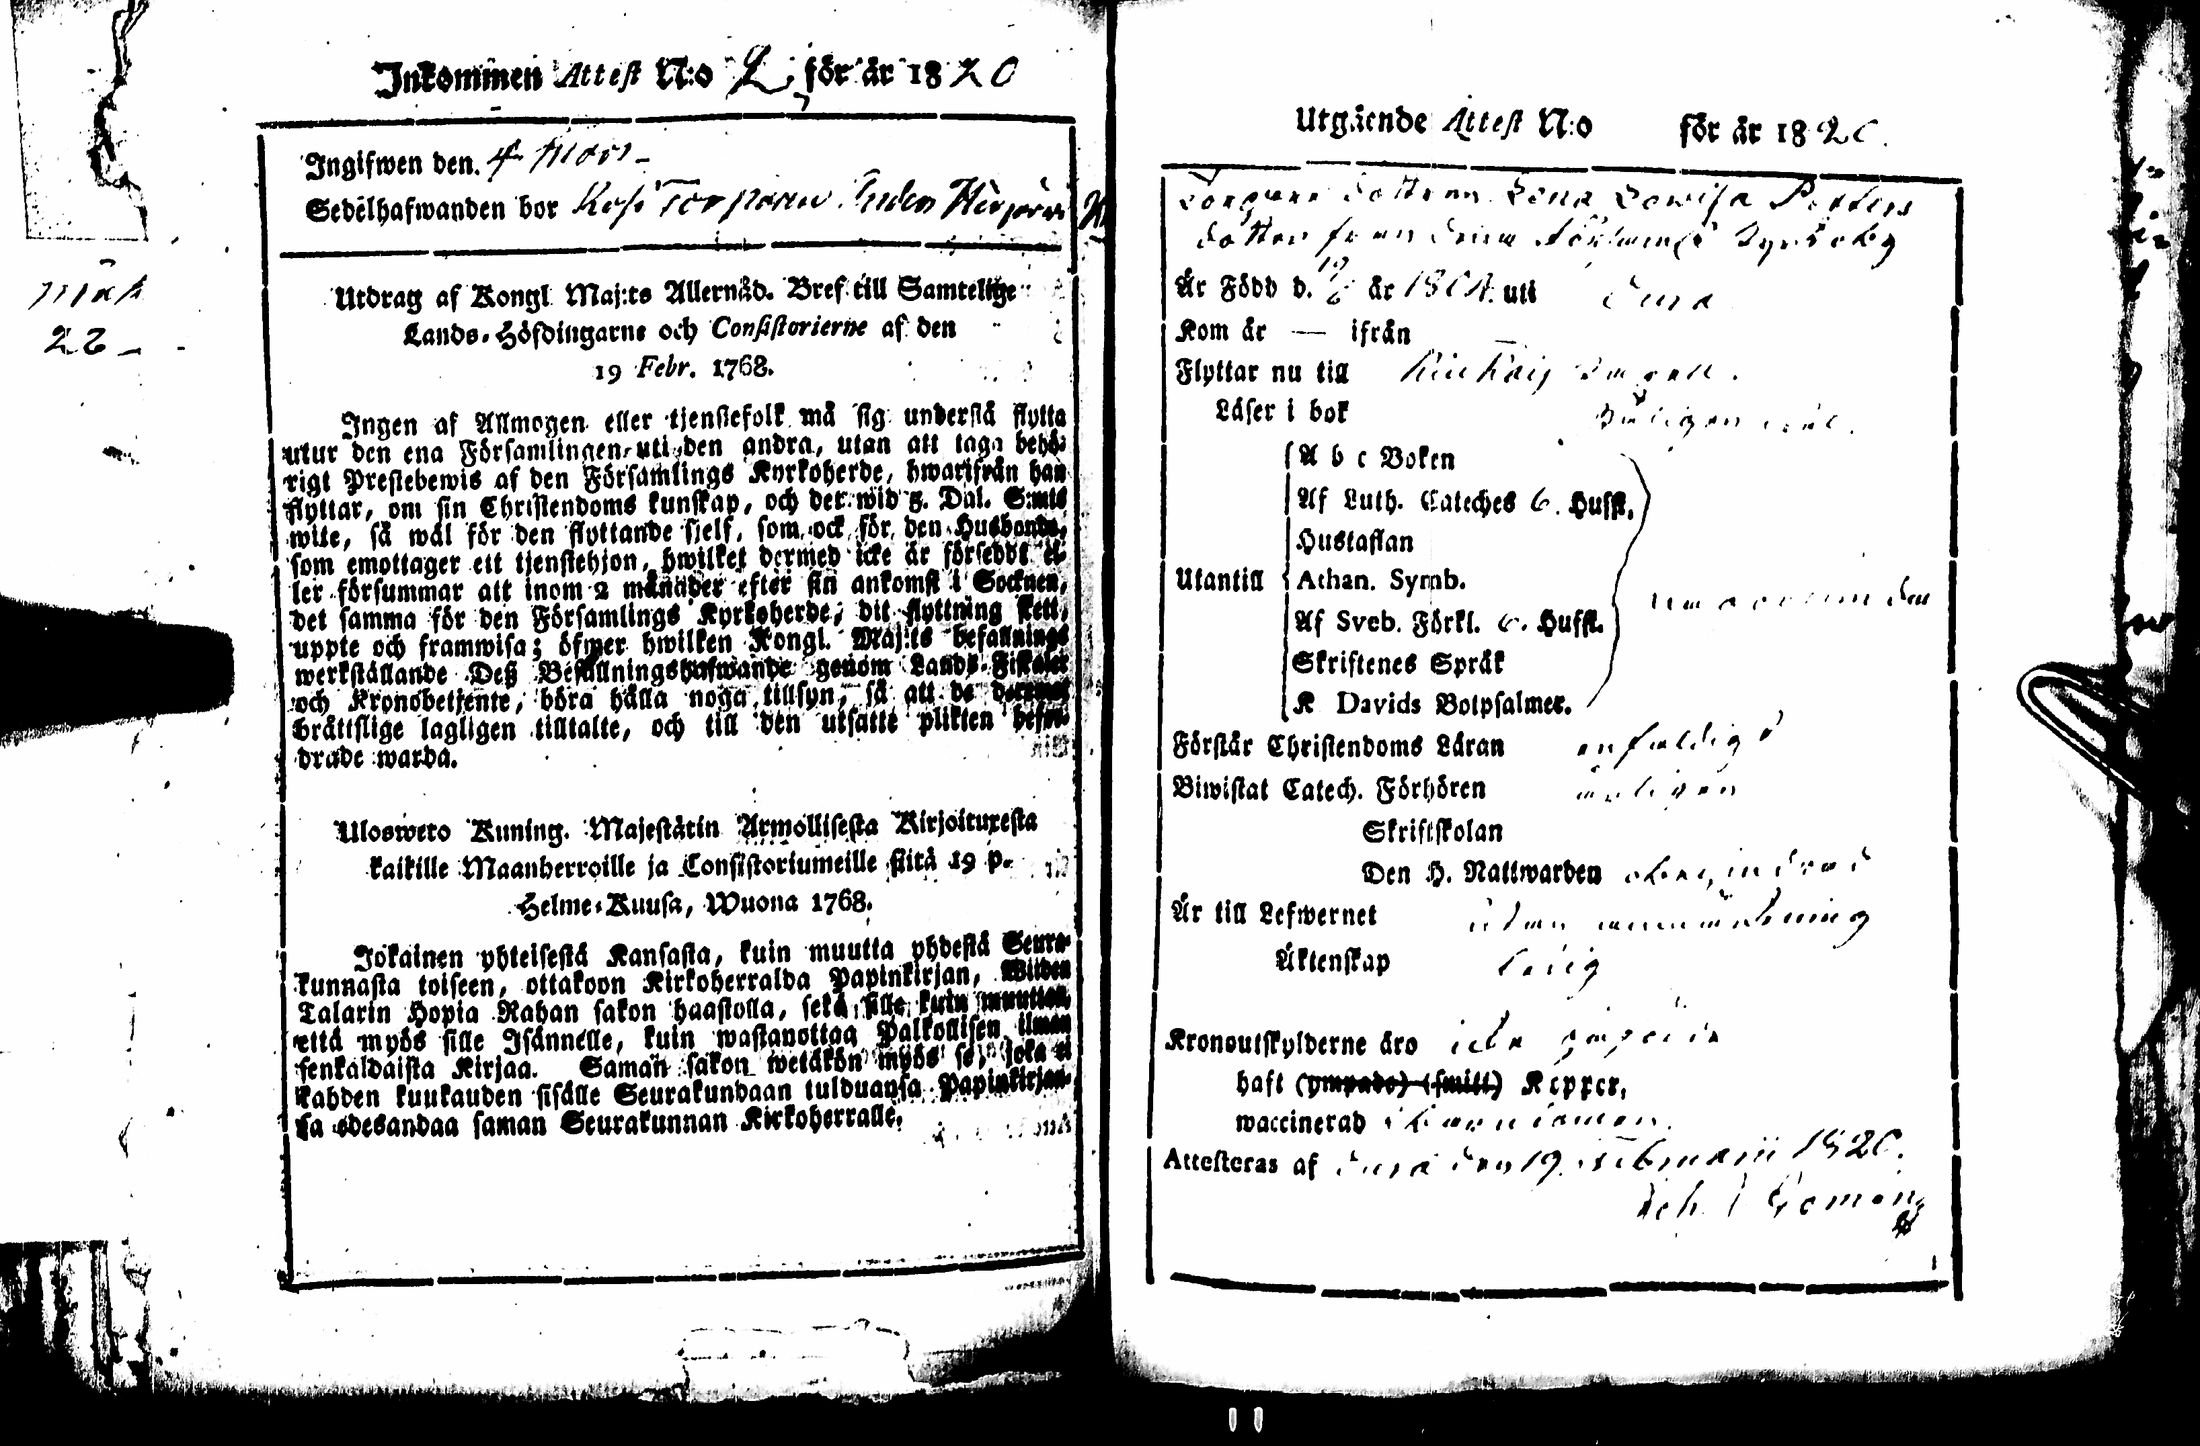 Inkommen Attest N:o 2, för år 1820
Ingifwen den. 4 Mars
Sedelhafwanden bor Torparen
22
Utdrag af Kongl Maj:ts Allernåd. Bref till Samtelige
Lands-Höfdingarne och Consistorierne af den
19 Febr. 1768.
Ingen af Allmogen eller tjenstefolk må sig understå flytta
utur den ena Församlingen uti den andra, utan att taga behö-
rigt Prestebewis af den Församlings Kyrkoherde, hwarifrån han
flyttar, om sin Christendoms kunskap, och det wid 3. Dal. S:mts
wite, så wäl för den flyttande sjelf, som ock för den Husbonde,
som emottager ett tjenstehjon, hwilket dermed icke är försedt el-
ler försummar att inom 2 månader efter sin ankomst i Socknen,
det samma för den Församlings Kyrkoherde, dit flyttning skett,
uppte och framwisa; öfwer hwilken Kongl. Maj:ts befallnings
werkställande Deß Befallningshafwande genom Lands-Fiskaler
och Kronobetjente, böra hålla noga tillsyn, så att de deremot
bråttslige lagligen tilltalte, och till den utsatte plikten befor-
drade warda.
Ulosweto Kuning. Majestätin Armollisesta Kirjoituxesta
kaikille Maanherroille ja Consistoriumeille siitä 19 p.
Helme-Kuusa, Wuona 1768.
Jokainen yhteisestä Kansasta, kuin muutta yhdestä Seura-
kunnasta toiseen, ottakoon Kirkoherralda Papinkirjan, Wiiden
Talarin Hopia Rahan sakon haastolla, sekä sille kuin muuttaa,
että myös sille Isännelle, kuin wastanottaa Palkollisen ilman
senkaldaista Kirjaa. Saman sakon wetäkön myös se, joka ei
kahden kuukauden sisälle Seurakundaan tulduansa Papinkirjan-
sa edesandaa saman Seurakunnan Kirkoherralle.
Utgående Attest N:o för år 1820.
Lena Lowisa Petters
dotter från
Är Född d. 19/6 år 1804. uti Eura
Kom år — ifrån
Flyttar nu till
Läser i bok
Utantill
A b c Boken
Af Luth. Cateches 6. Hufst.
Hustaflan
Athan. Symb.
Af Sveb. Förkl. 6. Hufst.
Skriftenes Språk
K Davids Botpsalmer.
Förstår Christendoms Läran enfaldigt
Biwistat Catech. Förhören årligen
Skriftskolan
Den H. Nattwarden obehindrad
Är till Lefwernet utan anmärkning
Äktenskap ledig
Kronoutskylderne äro icke
haft (ympade) (smitt) Kopper,
waccinerad i barndomen.
Attesteras af Eura den 19 Februarii 1820.